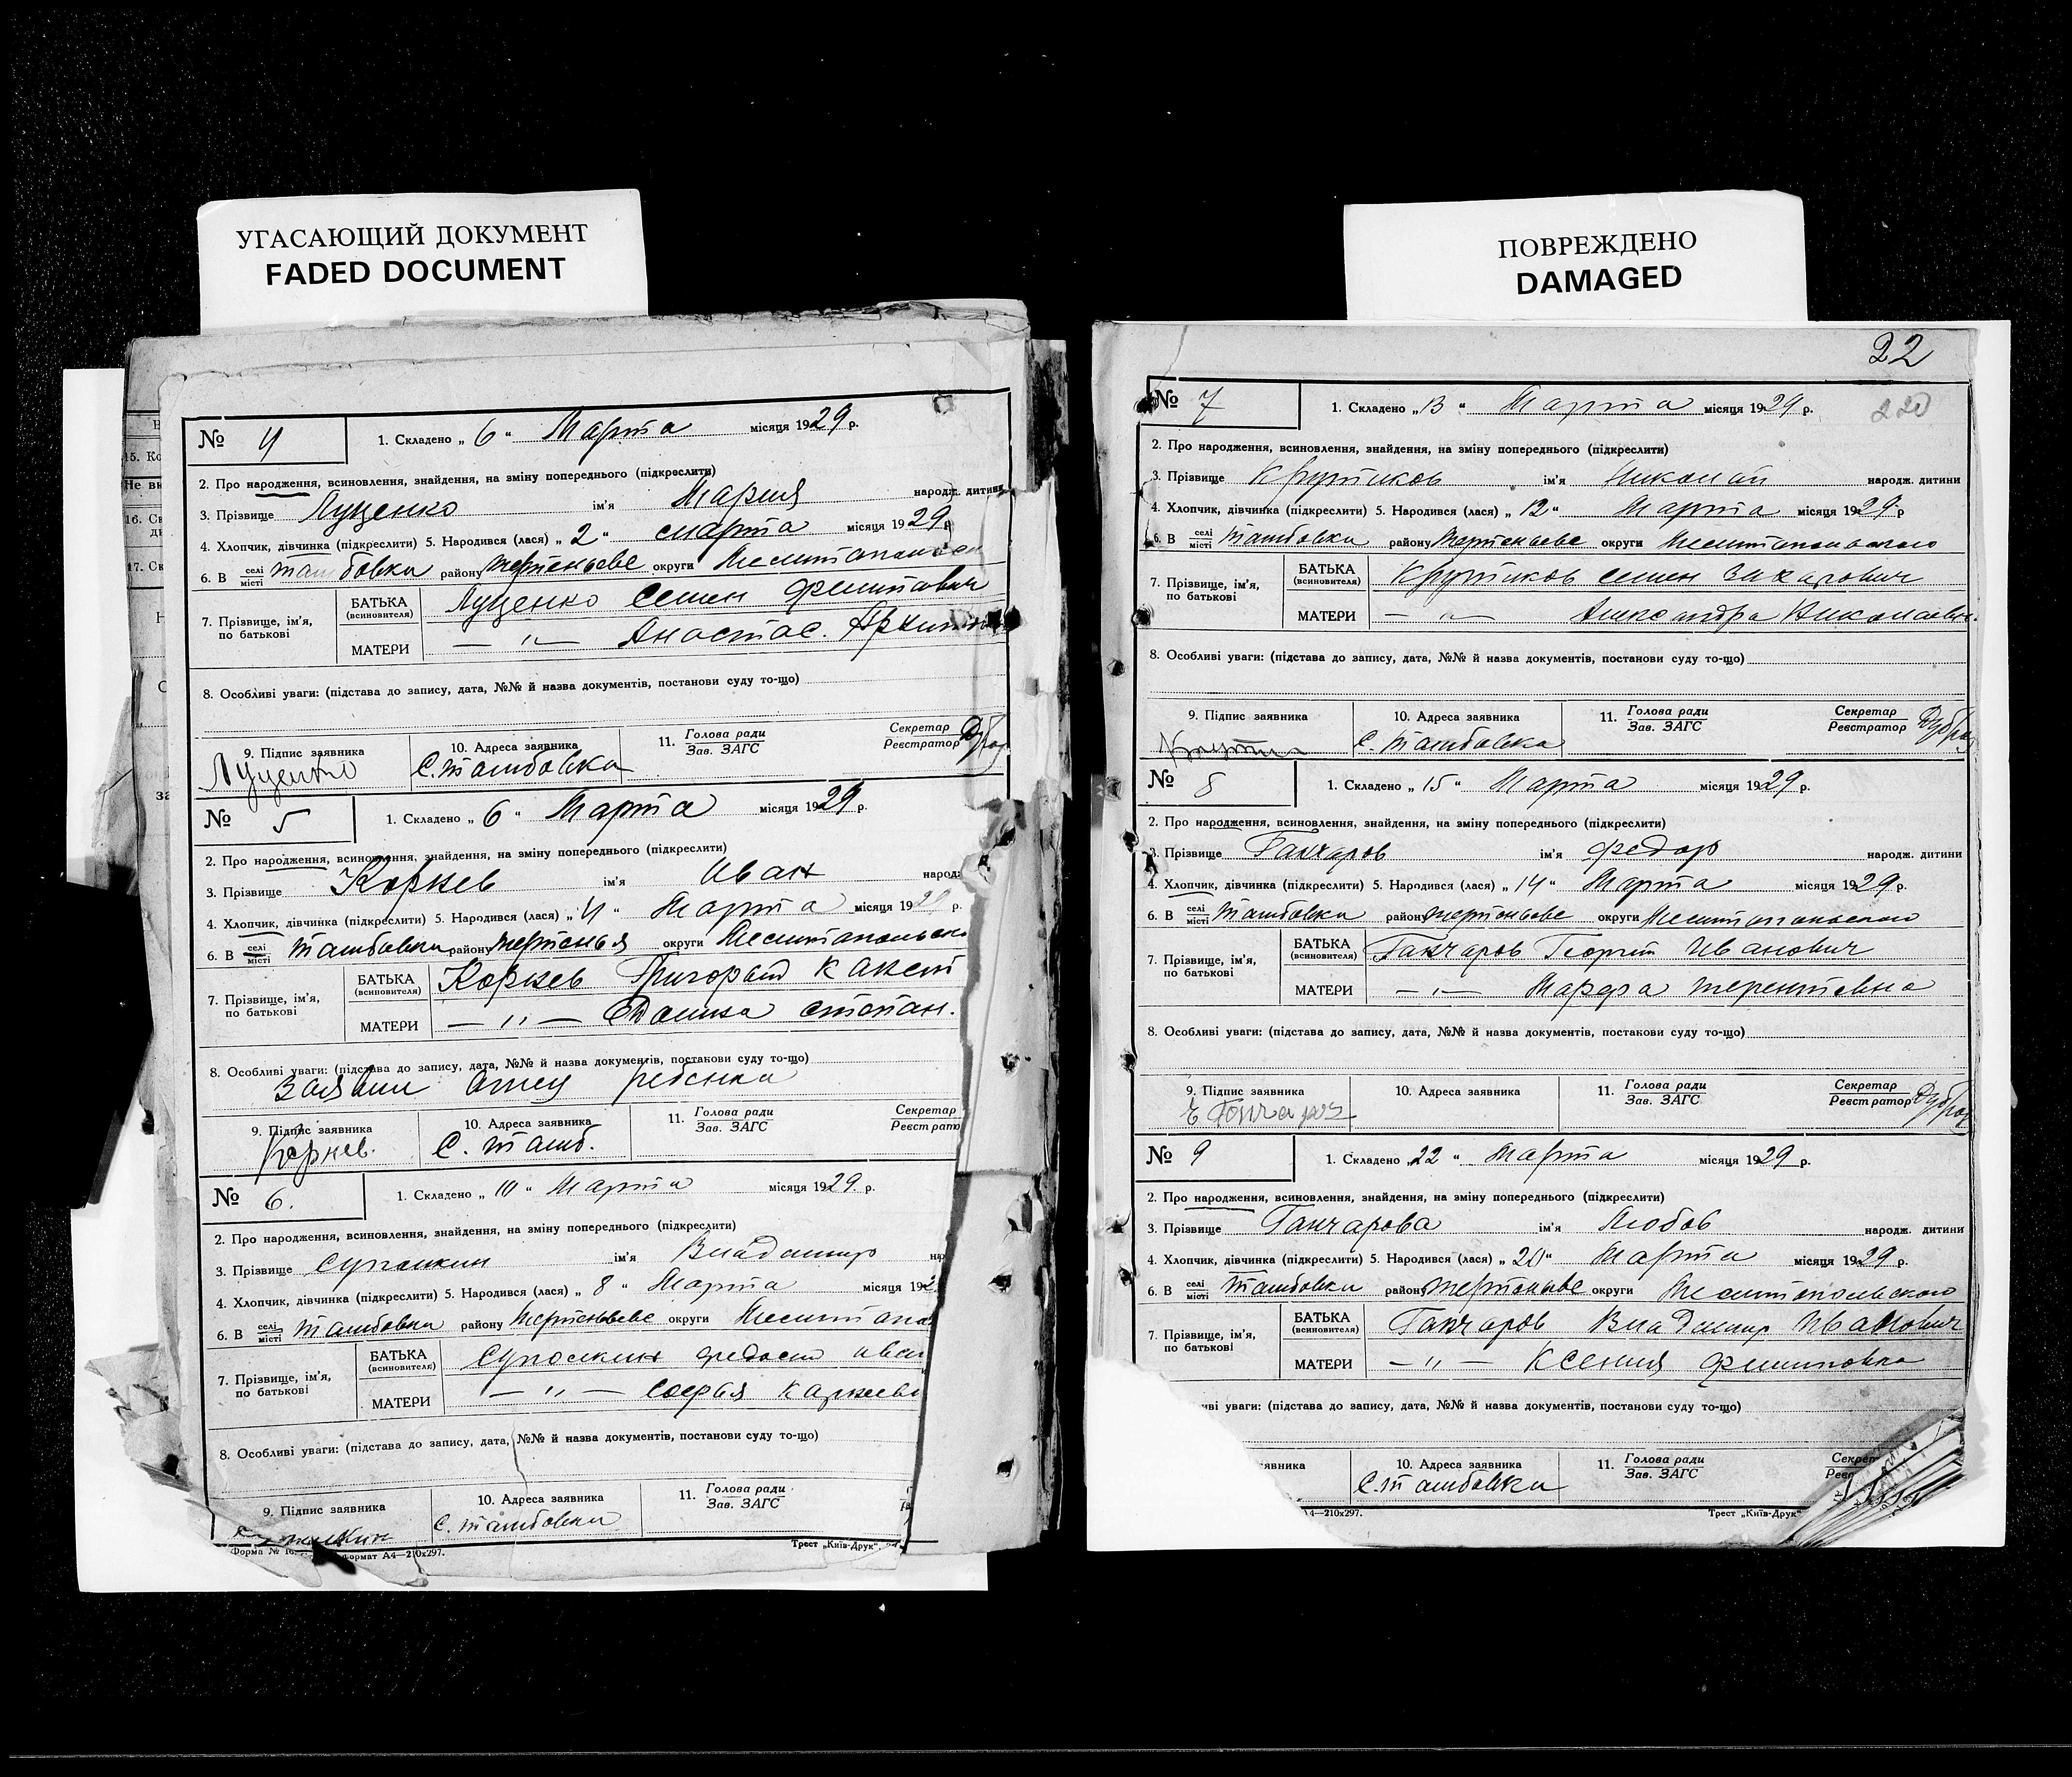 УГАСАЮЩИЙ ДОКУМЕНТ
FADED DOCUMENT
№ 4
1. Складено „ 6 “ Марта місяця 1929 р.
2. Про народження, всиновлення, знайдення, на зміну попереднього (підкреслити)
3. Прізвище Луценко ім'я Мария народж. дитини
4. Хлопчик, дівчинка (підкреслити) 5. Народився (лася) „ 2 “ марта місяця 1929 р
6. В селі місті Тамбовки району Терпеньеве округи
7. Прізвище, ім'я, по батькові
БАТЬКА (всиновителя) Луценко Семен Филипович
МАТЕРИ — „ — Анастас.
8. Особливі уваги: (підстава до запису, дата, №№ й назва документів, постанови суду то-що)
9. Підпис заявника Луценко
10. Адреса заявника С. Тамбовка
11. Голова ради Зав. ЗАГС
Секретар Реєстратор
№ 5
1. Складено „ 6 “ Марта місяця 1929 р.
2. Про народження, всиновлення, знайдення, на зміну попереднього (підкреслити)
3. Прізвище Корнев ім'я Иван народ
4. Хлопчик, дівчинка (підкреслити) 5. Народився (лася) „ 4 “ Марта місяця 1929 р.
6. В селі місті Тамбовки району Терпенья округи
7. Прізвище, ім'я, по батькові
БАТЬКА (всиновителя) Корнев Григорий
МАТЕРИ — „ — степан.
8. Особливі уваги: (підстава до запису, дата, №№ й назва документів, постакови суду то-що)
Заявил отец ребенка
9. Підпис заявника Корнев.
10. Адреса заявника С. Тамб.
11. Голова ради Зав. ЗАГС
Секретар Реєстрато
№ 6.
1. Складено „ 10 “ Марта місяця 1929 р.
2. Про народження, всиновлення, знайдення, на зміну попереднього (підкреслити)
3. Прізвище ім'я Владимир на
4. Хлопчик, дівчинка (підкреслити) 5. Народився (лася) „ 8 “ Марта місяця 192
6. В селі місті Тамбовки району Терпеньеве округи Мелитопо
7. Прізвище, ім'я, по батькові
БАТЬКА (всиновителя)
МАТЕРИ — „ — Софья
8. Особливі уваги: (підстава до запису, дата, №№ й назва документів, постанови суду то-що)
9. Підпис заявника
10. Адреса заявника С. Тамбовки
11. Голова ради Зав. ЗАГС
Форма № 16. формат А4—210х297.
Трест „Київ-Друк“
ПОВРЕЖДЕНО
DAMAGED
22
220
№ 7
1. Складено „ 13 “ Марта місяця 1929 р.
2. Про народження, всиновлення, знайдення, на зміну попереднього (підкреслити)
3. Прізвище Крутиков ім'я Николай народж. дитини
4. Хлопчик, дівчинка (підкреслити) 5. Народився (лася) „ 12 “ Марта місяця 1929 р
6. В селі місті Тамбовки району Терпеньеве округи Мелитопольского
7. Прізвище, ім'я, по батькові
БАТЬКА (всиновителя) Крутиков Семен Захарович
МАТЕРИ — „ — Александра Николаевн.
8. Особливі уваги: (підстава до запису, дата, №№ й назва документів, постанови суду то-що)
9. Підпис заявника
10. Адреса заявника С. Тамбовка
11. Голова ради Зав. ЗАГС
Секретар Реєстратор
№ 8
1. Складено „ 15 “ Марта місяця 1929 р.
2. Про народження, всиновлення, знайдення, на зміну попереднього (підкреслити)
3. Прізвище Ганчаров ім'я Федор народж. дитини
4. Хлопчик, дівчинка (підкреслити) 5. Народився (лася) „ 14 “ Марта місяця 1929 р.
6. В селі місті Тамбовки району Терпеньеве округи Мелитопольского
7. Прізвище, ім'я, по батькові
БАТЬКА (всиновителя) Ганчаров Георгий Иванович
МАТЕРИ — „ — Марфа Терентевна
8. Особливі уваги: (підстава до запису, дата, №№ й назва документів, постакови суду то-що)
9. Підпис заявника
10. Адреса заявника
11. Голова ради Зав. ЗАГС
Секретар Реєстратор
№ 9
1. Складено „ 22 “ Марта місяця 1929 р.
2. Про народження, всиновлення, знайдення, на зміну попереднього (підкреслити)
3. Прізвище Ганчарова ім'я Любов народж. дитини
4. Хлопчик, дівчинка (підкреслити) 5. Народився (лася) „ 20 “ Марта місяця 1929 р.
6. В селі місті Тамбовки району Терпеньеве округи Мелитопольского
7. Прізвище, ім'я, по батькові
БАТЬКА (всиновителя) Ганчаров Владимир Иванович
МАТЕРИ — „ — Ксения Филиповна
ві уваги: (підстава до запису, дата, №№ й назва документів, постанови суду то-що)
явника
10. Адреса заявника С. Тамбовка
11. Голова ради Зав. ЗАГС
4—210х297.
Трест „Київ-Друк“